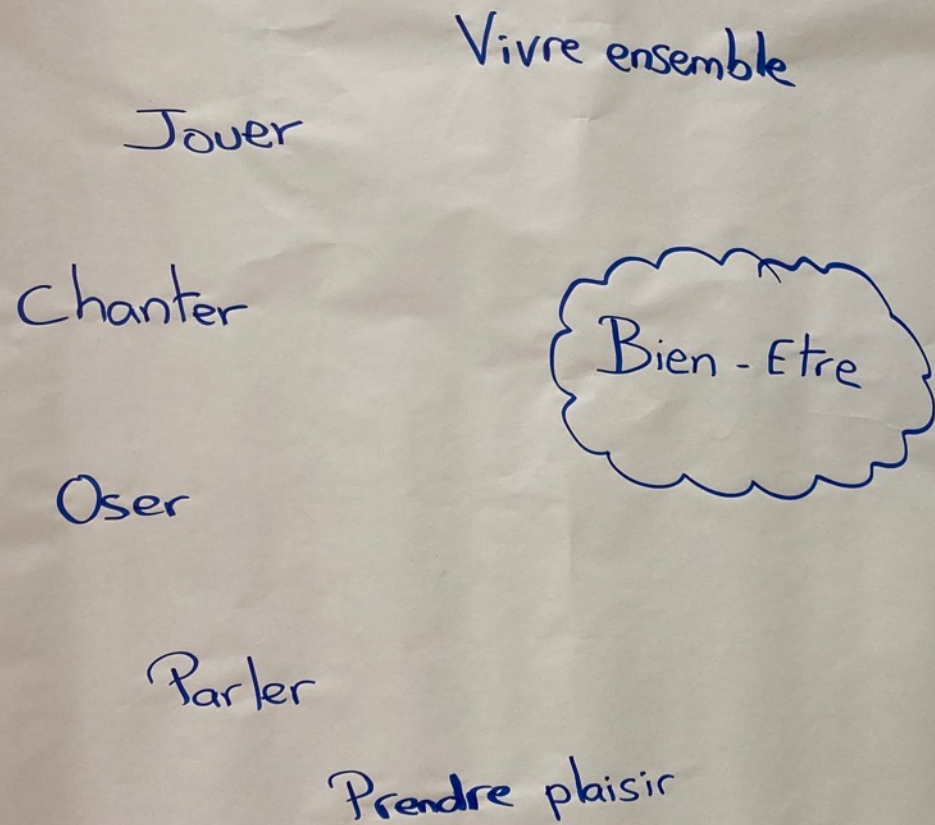 Vivre ensemble
Jouer
Chanter
Bien - Etre
Oser
Parler
Prendre plaisir